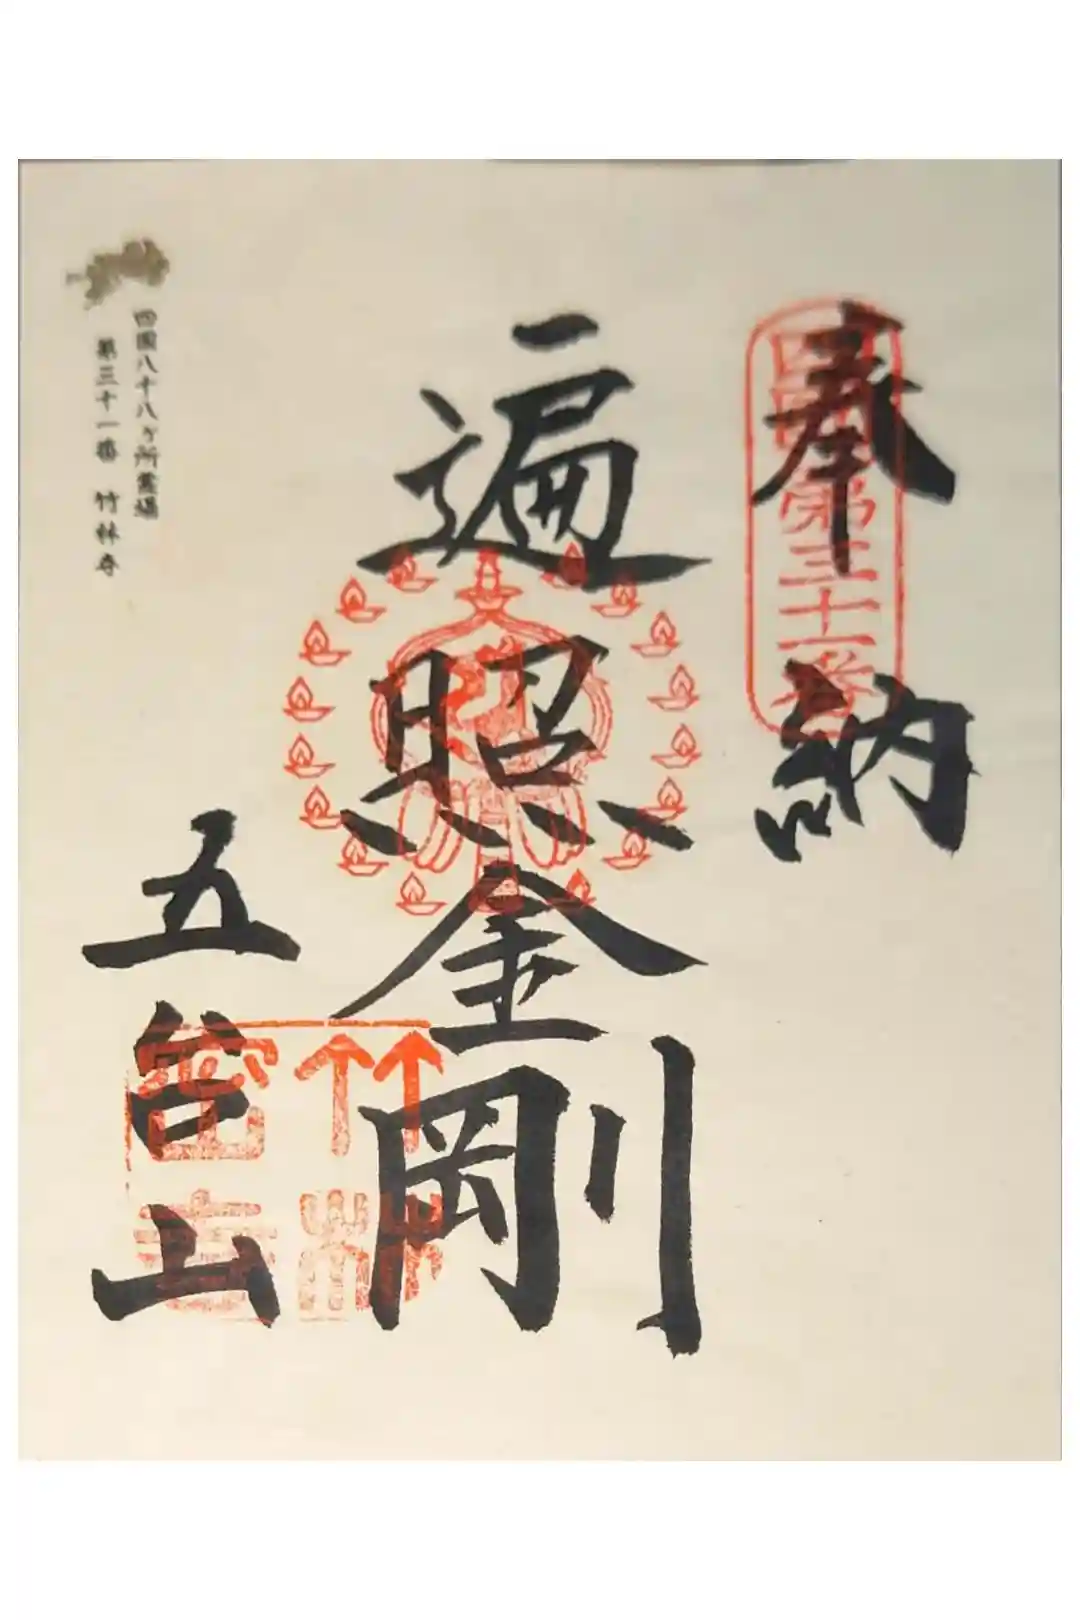 奉納
四国第三十一番
遍照金剛
五台山
竹林
密寺
四国八十八ヶ所霊場
第三十一番 竹林寺